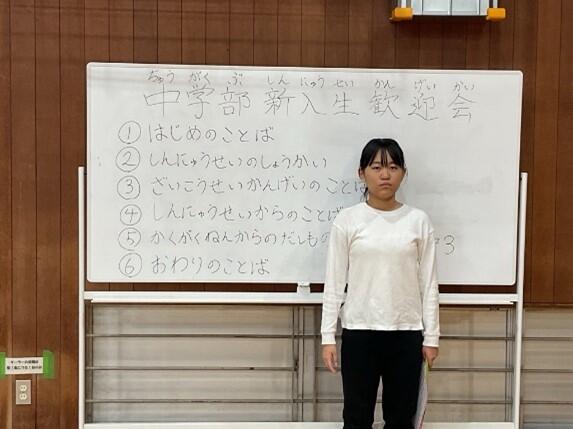 ちゅう がく ぶ しん にゅう せい かん げい かい
中学部 新入生 歓迎会
① はじめのことば
② しんにゅうせいのしょうかい
③ ざいこうせいかんげいのことば
④ しんにゅうせいからのことば
⑤ かくがくねんからのだしもの 3
⑥ おわりのことば